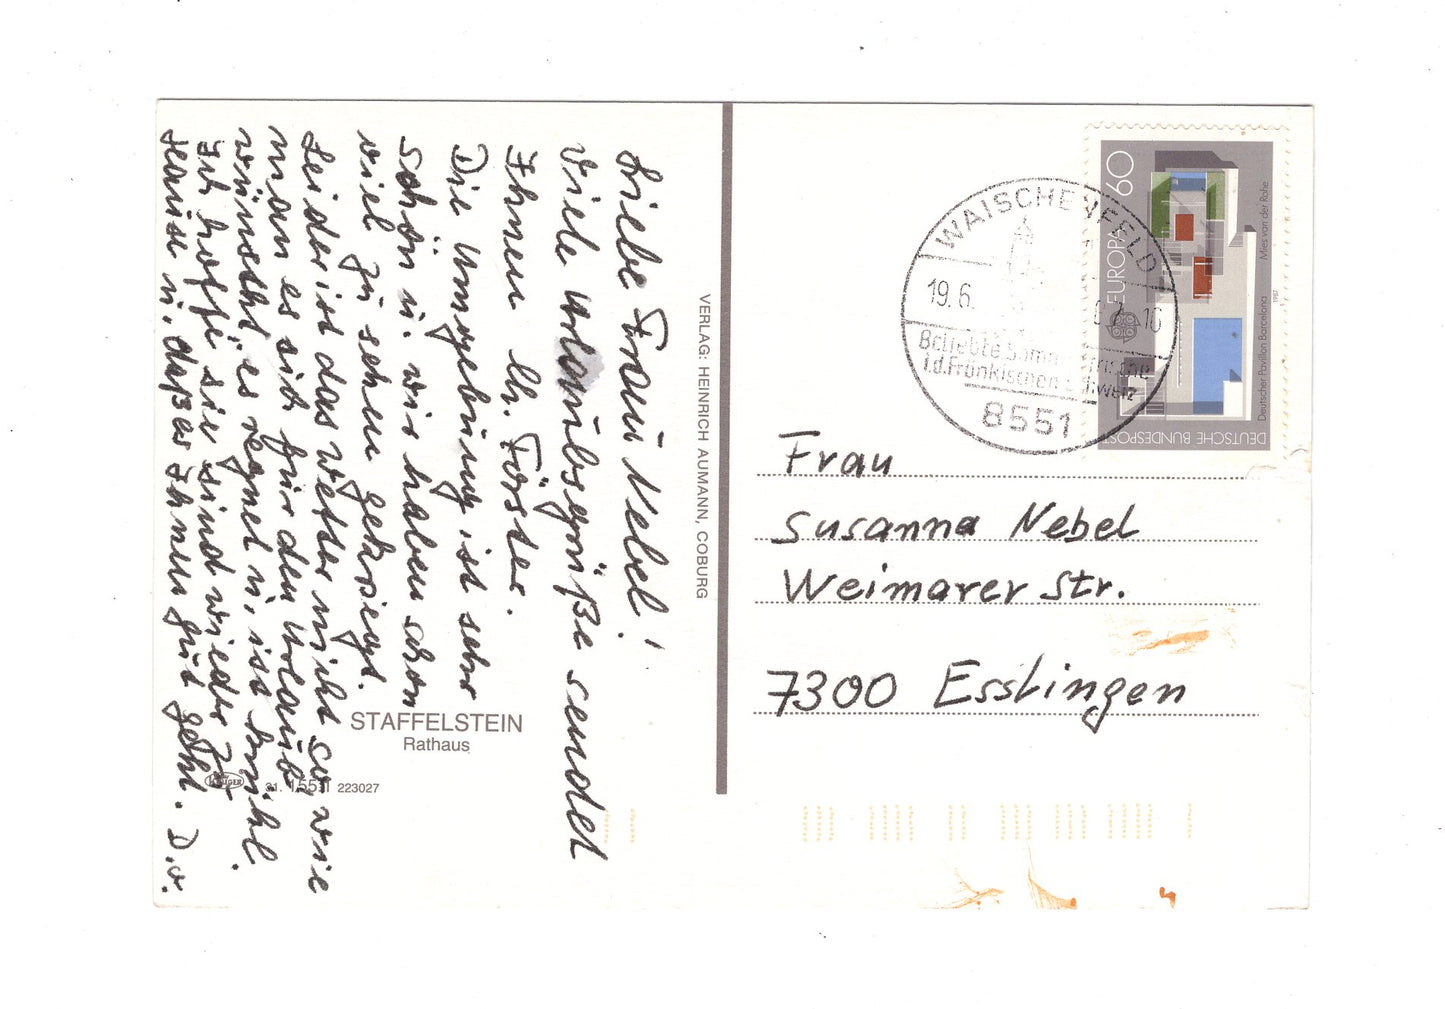 Liebe Frau Nebel!
Viele Urlaubsgrüße sendet
Ihnen Ch. Förster.
Die Umgebung ist sehr
schön u. wir haben schon
viel zu sehen gekriegt.
Leider ist das Wetter nicht so, wie
man es sich für den Urlaub
wünscht, es regnet u. ist kühl.
Ich hoffe sie sind wieder z.
Hause u. daß es Ihnen gut geht. D.O.
STAFFELSTEIN
Rathaus
31. 1553 223027
VERLAG: HEINRICH AUMANN, COBURG
WAISCHENFELD
19.6. 16
Beliebte
i.d. Fränkischen Schweiz
8551
60
EUROPA
DEUTSCHE BUNDESPOST
Deutscher Pavillon Barcelona
1987
Mies van der Rohe
Frau
Susanna Nebel
Weimarer Str.
7300 Esslingen